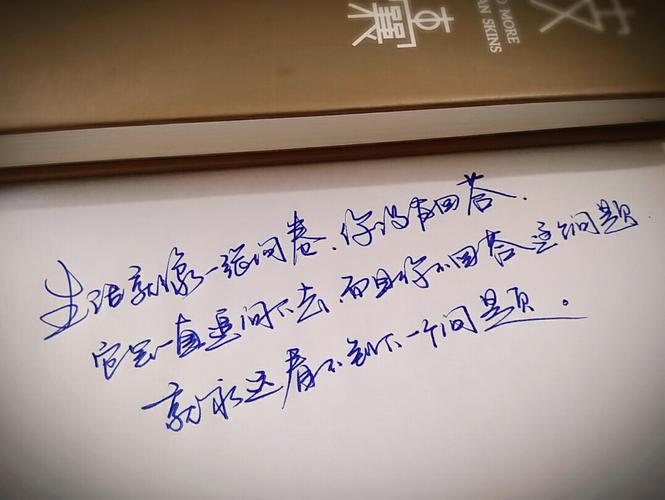 D MORE
AN SKINS
生活就像一张问卷,你没有回答,
它会一直追问下去,而且你不回答这个问题
就永远看不到下一个问题。